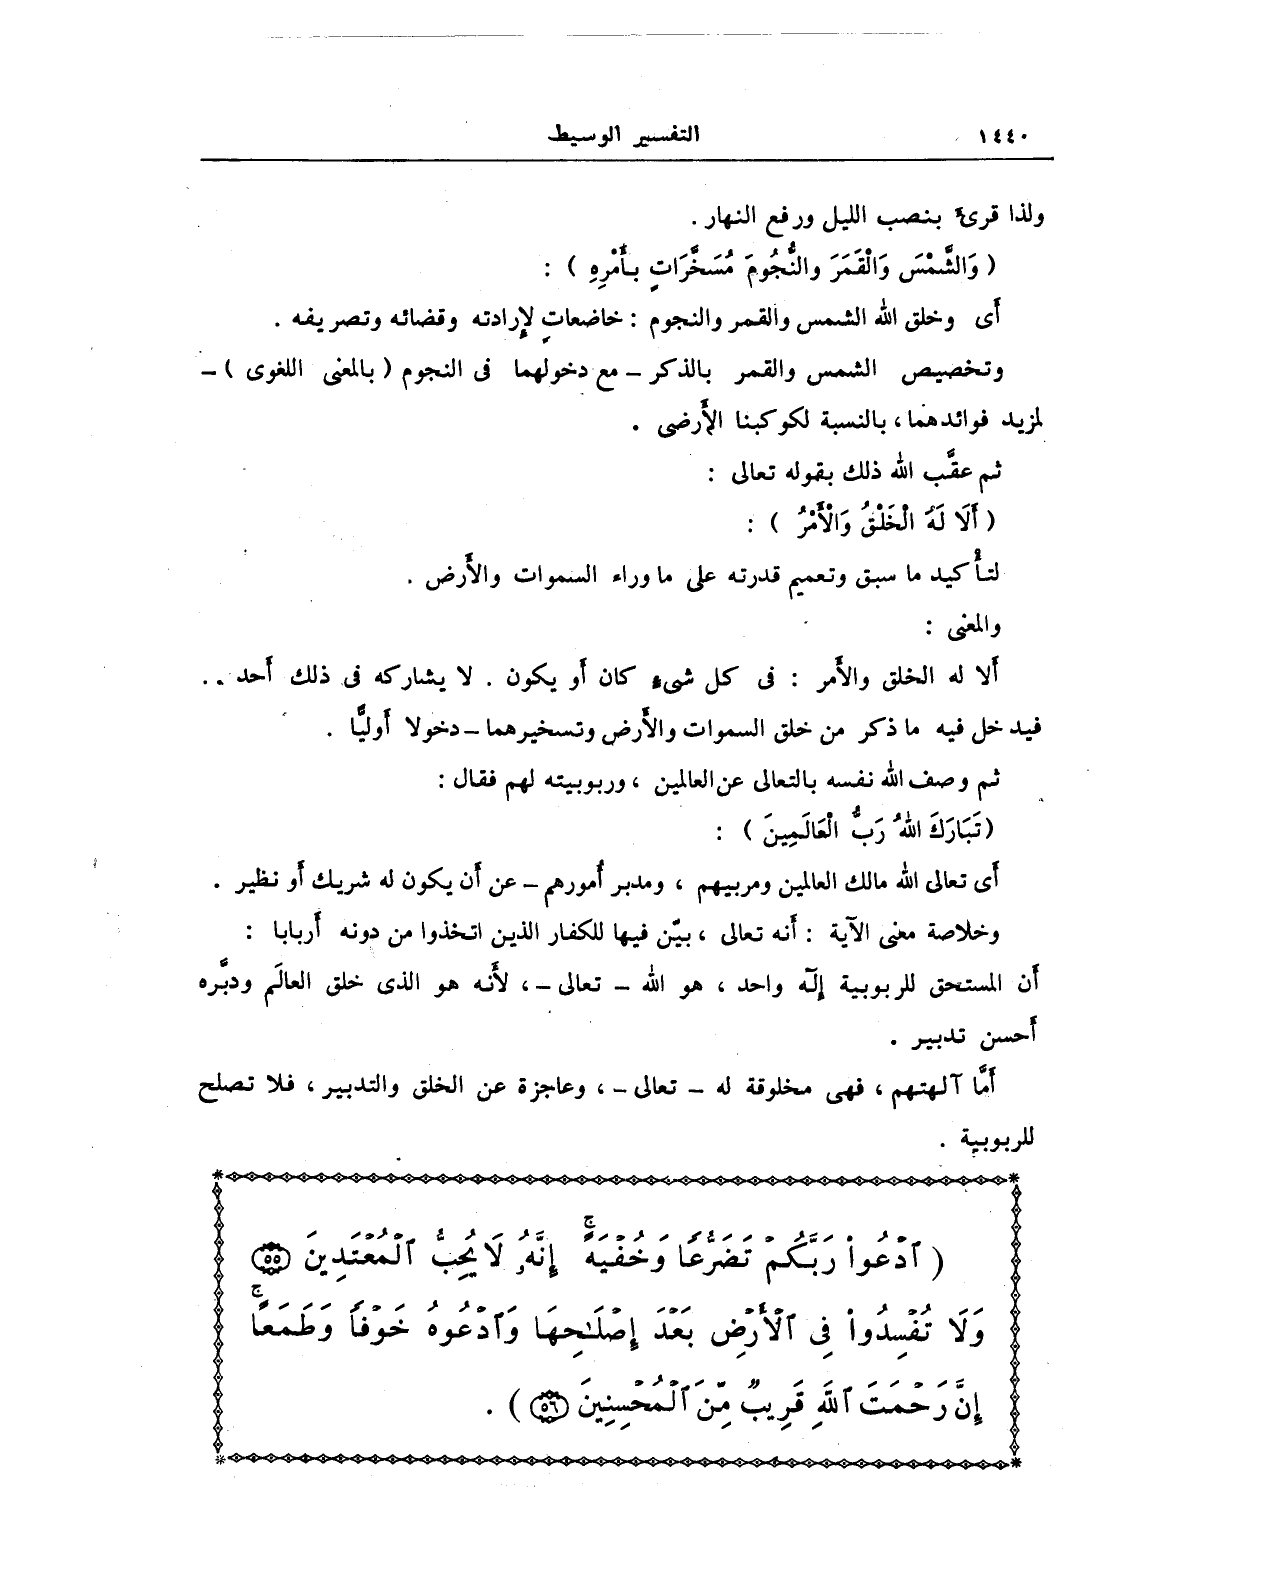 ١٤٤٠ التفسير الوسيط
ولذا قرىء بنصب الليل ورفع النهار .
( وَالشَّمْسَ وَالْقَمَرَ والنُّجُومَ مُسَخَّرَاتٍ بِأَمْرِهِ ) :
أى وخلق الله الشمس والقمر والنجوم : خاضعاتٍ لإِرادته وقضائه وتصريفه .
وتخصيص الشمس والقمر بالذكر – مع دخولهما فى النجوم ( بالمعنى اللغوى ) –
لمزيد فوائدهما ، بالنسبة لكوكبنا الأَرضى .
ثم عقَّب الله ذلك بقوله تعالى :
( أَلَا لَهُ الْخَلْقُ وَالْأَمْرُ ) :
لتأْكيد ما سبق وتعميم قدرته على ما وراء السموات والأَرض .
والمعنى :
أَلا له الخلق والأَمر : فى كل شىء كان أَو يكون . لا يشاركه فى ذلك أَحد ..
فيدخل فيه ما ذكر من خلق السموات والأَرض وتسخيرهما – دخولا أَوليًّا .
ثم وصف الله نفسه بالتعالى عن العالمين ، وربوبيته لهم فقال :
( تَبَارَكَ اللهُ رَبُّ الْعَالَمِينَ ) :
أَى تعالى الله مالك العالمين ومربيهم ، ومدبر أُمورهم – عن أَن يكون له شريك أَو نظير .
وخلاصة معنى الآية : أَنه تعالى ، بيّن فيها للكفار الذين اتخذوا من دونه أَربابا :
أَن المستحق للربوبية إلَه واحد ، هو الله – تعالى – ، لأَنه هو الذى خلق العالَم ودبَّره
أَحسن تدبير .
أَمَّا آلهتهم ، فهى مخلوقة له – تعالى – ، وعاجزة عن الخلق والتدبير ، فلا تصلح
للربوبية .
( ٱدۡعُواْ رَبَّكُمۡ تَضَرُّعٗا وَخُفۡيَةًۚ إِنَّهُۥ لَا يُحِبُّ ٱلۡمُعۡتَدِينَ ٥٥
وَلَا تُفۡسِدُواْ فِى ٱلۡأَرۡضِ بَعۡدَ إِصۡلَٰحِهَا وَٱدۡعُوهُ خَوۡفٗا وَطَمَعًاۚ
إِنَّ رَحۡمَتَ ٱللَّهِ قَرِيبٞ مِّنَ ٱلۡمُحۡسِنِينَ ٥٦ ) .